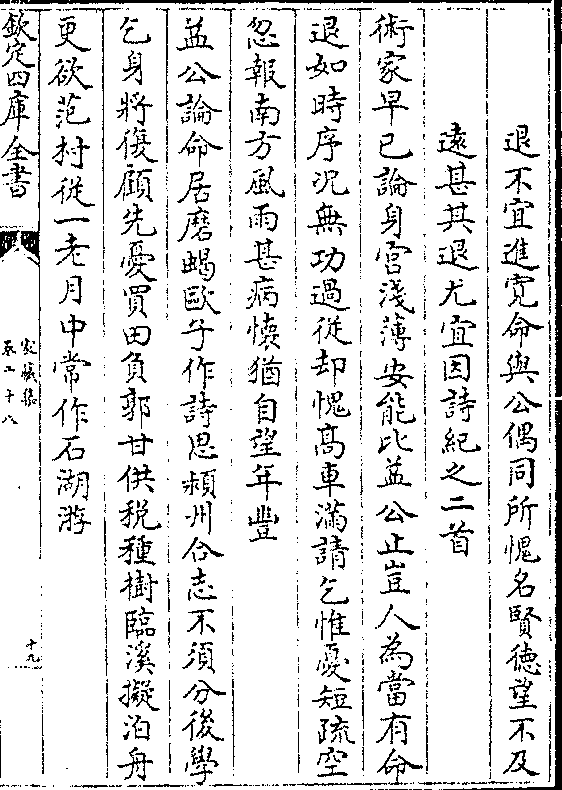 退不宜進寛命與公偶同所愧名賢德望不及
逺甚其退尤宜因詩紀之二首
術家早已論身宫淺薄安能比益公止豈人為當有命
退如時序况無功過從却愧髙車滿請乞惟憂短疏空
忽報南方風雨甚病懐猶自望年豐
益公論命居磨蝎歐子作詩思潁州合志不須分後學
乞身將復顧先憂買田負郭甘供税種樹臨溪擬泊舟
更欲范村從一老月中常作石湖游
欽定四庫全書
家藏集
卷二十八
十九